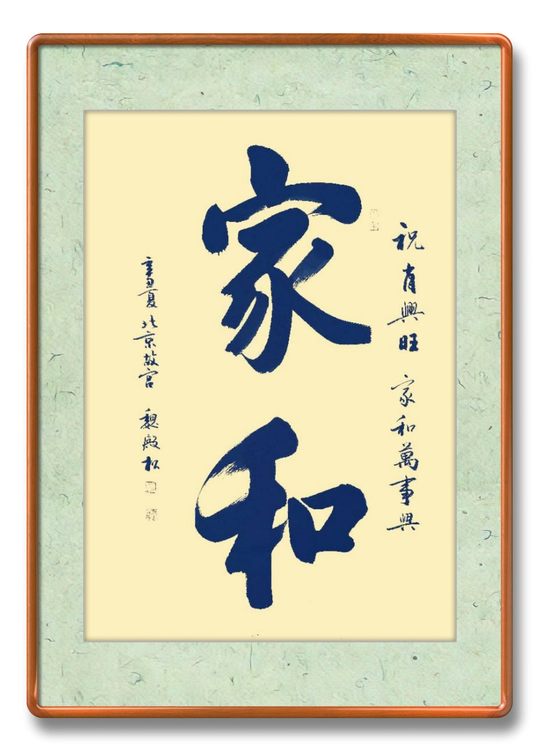 家和
祝肖興旺 家和萬事興
辛丑夏 北京故宮 魏殿松